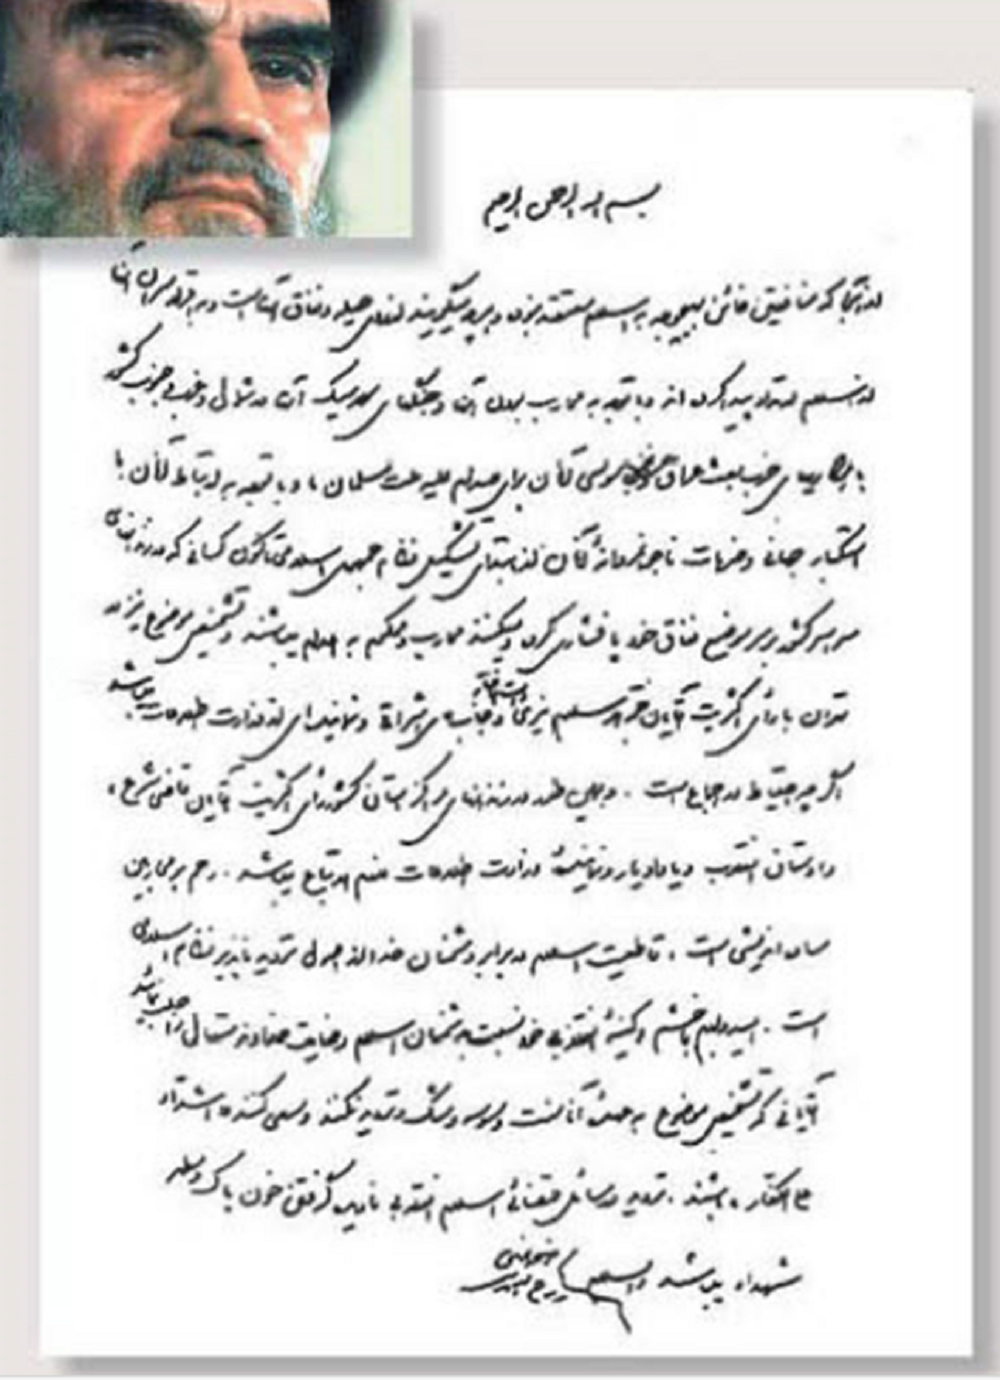 بسم الله الرحمن الرحیم
از آنجا که منافقین خائن بهیچوجه به اسلام معتقد نبوده و هر چه میگویند از روی حیله و نفاق آنهاست و به اقرار سران آنها
از اسلام ارتداد پیدا کرده‌اند و با توجه به محارب بودن آنها و جنگهای کلاسیک آن در شمال و غرب و جنوب کشور
با همکاریهای حزب بعث عراق و جاسوسی آنان برای صدام علیه ملت مسلمان ما، و با توجه به ارتباط آنان با
استکبار جهانی و ضربات ناجوانمردانهٔ آنان از ابتدای تشکیل نظام جمهوری اسلامی تاکنون، کسانی که در زندانهای
سراسر کشور بر سر موضع نفاق خود پافشاری کرده و میکنند محارب و محکوم به اعدام میباشند و تشخیص موضوع نیز در
تهران با رأی اکثریت آقایان حجةالاسلام نیری و جناب آقای اشراقی و نمایندهای از وزارت اطلاعات میباشد
اگر چه احتیاط در اجماع است. و همین طور در زندانهای مراکز استان کشور رأی اکثریت آقایان قاضی شرع،
دادستان انقلاب و یا دادیار و نمایندهٔ وزارت اطلاعات لازم الاتباع میباشد. رحم بر محاربین
ساده‌اندیشی است، قاطعیت اسلام در برابر دشمنان خدا از اصول تردید ناپذیر نظام اسلامی
است. امیدوارم با خشم و کینهٔ انقلابی خود نسبت به دشمنان اسلام رضایت خداوند متعال را جلب نمائید
آقایانی که تشخیص موضوع به عهدهٔ آنانست وسوسه و شک و تردید نکنند و سعی کنند «اشداء
علی الکفار» باشند. تردید در مسائل قضائی اسلام انقلابی نادیده گرفتن خون پاک و مطهر
شهداء میباشد والسلام
روح الله الموسوی الخمینی